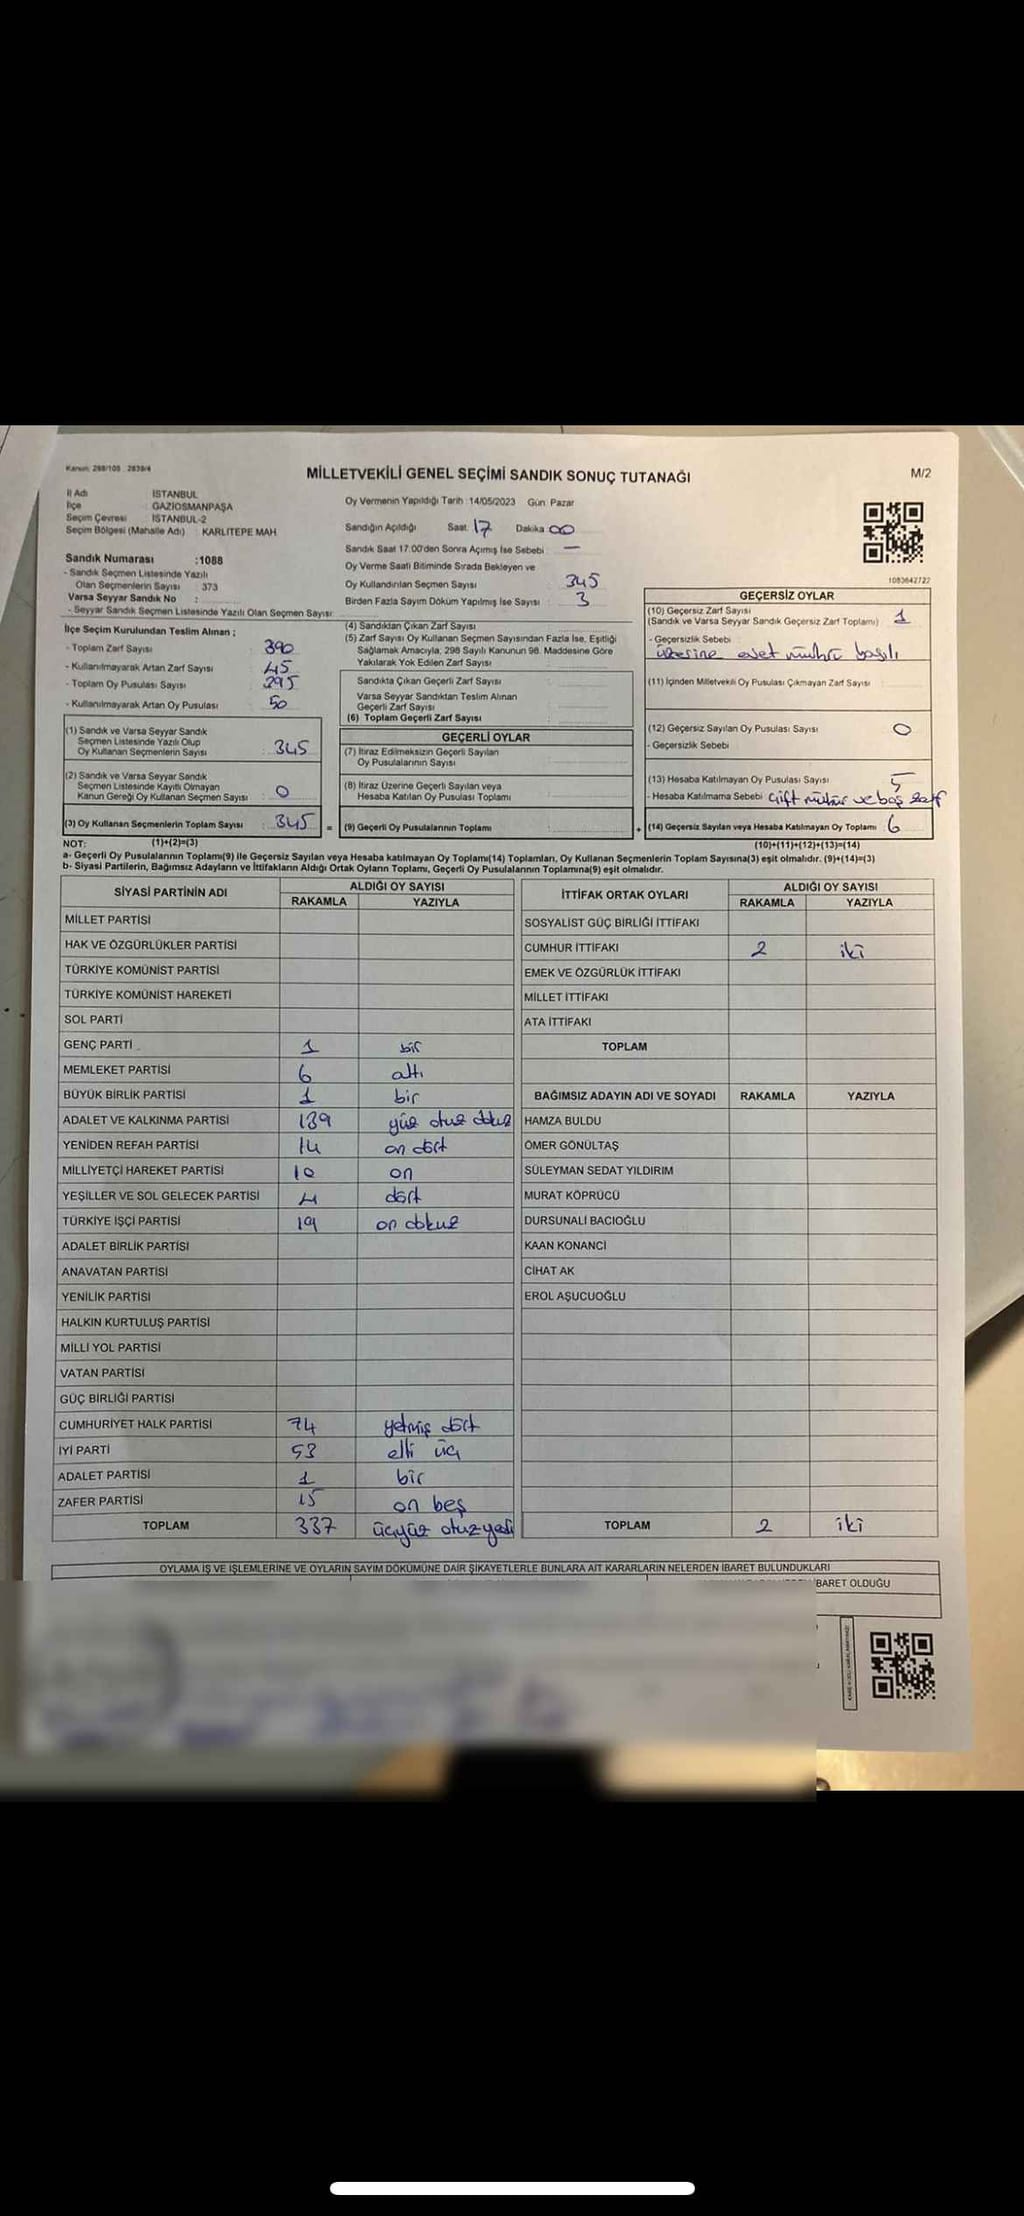 Kanun: 298/105 , 2839/4
MİLLETVEKİLİ GENEL SEÇİMİ SANDIK SONUÇ TUTANAĞI
M/2
İl Adı İSTANBUL
İlçe GAZİOSMANPAŞA
Seçim Çevresi İSTANBUL-2
Seçim Bölgesi (Mahalle Adı) : KARLITEPE MAH
Oy Vermenin Yapıldığı Tarih :14/05/2023 Gün: Pazar
Sandığın Açıldığı Saat: 17 Dakika 00
Sandık Saat 17:00'den Sonra Açımış İse Sebebi : —
Oy Verme Saati Bitiminde Sırada Bekleyen ve
Oy Kullandırılan Seçmen Sayısı : 345
Birden Fazla Sayım Döküm Yapılmış İse Sayısı : 3
Sandık Numarası :1088
- Sandık Seçmen Listesinde Yazılı
Olan Seçmenlerin Sayısı : 373
Varsa Seyyar Sandık No :
- Seyyar Sandık Seçmen Listesinde Yazılı Olan Seçmen Sayısı:
1083642722
İlçe Seçim Kurulundan Teslim Alınan ;
- Toplam Zarf Sayısı : 390
- Kullanılmayarak Artan Zarf Sayısı : 45
- Toplam Oy Pusulası Sayısı : 295
- Kullanılmayarak Artan Oy Pusulası : 50
(1) Sandık ve Varsa Seyyar Sandık
Seçmen Listesinde Yazılı Olup
Oy Kullanan Seçmenlerin Sayısı : 345
(2) Sandık ve Varsa Seyyar Sandık
Seçmen Listesinde Kayıtlı Olmayan
Kanun Gereği Oy Kullanan Seçmen Sayısı : 0
(3) Oy Kullanan Seçmenlerin Toplam Sayısı : 345 =
(4) Sandıktan Çıkan Zarf Sayısı :
(5) Zarf Sayısı Oy Kullanan Seçmen Sayısından Fazla İse, Eşitliği
Sağlamak Amacıyla, 298 Sayılı Kanunun 98. Maddesine Göre
Yakılarak Yok Edilen Zarf Sayısı :
Sandıkta Çıkan Geçerli Zarf Sayısı :
Varsa Seyyar Sandıktan Teslim Alınan
Geçerli Zarf Sayısı :
(6) Toplam Geçerli Zarf Sayısı :
GEÇERLİ OYLAR
(7) İtiraz Edilmeksizin Geçerli Sayılan
Oy Pusulalarının Sayısı :
(8) İtiraz Üzerine Geçerli Sayılan veya
Hesaba Katılan Oy Pusulası Toplamı :
(9) Geçerli Oy Pusulalarının Toplamı : +
GEÇERSİZ OYLAR
(10) Geçersiz Zarf Sayısı
(Sandık ve Varsa Seyyar Sandık Geçersiz Zarf Toplamı) : 1
- Geçersizlik Sebebi :
üzerine evet mührü basılı
(11) İçinden Milletvekili Oy Pusulası Çıkmayan Zarf Sayısı :
(12) Geçersiz Sayılan Oy Pusulası Sayısı : 0
- Geçersizlik Sebebi
(13) Hesaba Katılmayan Oy Pusulası Sayısı : 5
- Hesaba Katılmama Sebebi : çift mühür ve boş zarf
(14) Geçersiz Sayılan veya Hesaba Katılmayan Oy Toplamı : 6
NOT: (1)+(2)=(3) (10)+(11)+(12)+(13)=(14)
a- Geçerli Oy Pusulalarının Toplamı(9) ile Geçersiz Sayılan veya Hesaba katılmayan Oy Toplamı(14) Toplamları, Oy Kullanan Seçmenlerin Toplam Sayısına(3) eşit olmalıdır. (9)+(14)=(3)
b- Siyasi Partilerin, Bağımsız Adayların ve İttifakların Aldığı Ortak Oyların Toplamı, Geçerli Oy Pusulalarının Toplamına(9) eşit olmalıdır.
SİYASİ PARTİNİN ADI ALDIĞI OY SAYISI
RAKAMLA YAZIYLA
MİLLET PARTİSİ
HAK VE ÖZGÜRLÜKLER PARTİSİ
TÜRKİYE KOMÜNİST PARTİSİ
TÜRKİYE KOMÜNİST HAREKETİ
SOL PARTİ
GENÇ PARTİ 1 bir
MEMLEKET PARTİSİ 6 altı
BÜYÜK BİRLİK PARTİSİ 1 bir
ADALET VE KALKINMA PARTİSİ 139 yüz otuz dokuz
YENİDEN REFAH PARTİSİ 14 on dört
MİLLİYETÇİ HAREKET PARTİSİ 10 on
YEŞİLLER VE SOL GELECEK PARTİSİ 4 dört
TÜRKİYE İŞÇİ PARTİSİ 19 on dokuz
ADALET BİRLİK PARTİSİ
ANAVATAN PARTİSİ
YENİLİK PARTİSİ
HALKIN KURTULUŞ PARTİSİ
MİLLİ YOL PARTİSİ
VATAN PARTİSİ
GÜÇ BİRLİĞİ PARTİSİ
CUMHURİYET HALK PARTİSİ 74 yetmiş dört
İYİ PARTİ 53 elli üç
ADALET PARTİSİ 1 bir
ZAFER PARTİSİ 15 on beş
TOPLAM 337 üçyüz otuz yedi
İTTİFAK ORTAK OYLARI ALDIĞI OY SAYISI
RAKAMLA YAZIYLA
SOSYALİST GÜÇ BİRLİĞİ İTTİFAKI
CUMHUR İTTİFAKI 2 iki
EMEK VE ÖZGÜRLÜK İTTİFAKI
MİLLET İTTİFAKI
ATA İTTİFAKI
TOPLAM
BAĞIMSIZ ADAYIN ADI VE SOYADI RAKAMLA YAZIYLA
HAMZA BULDU
ÖMER GÖNÜLTAŞ
SÜLEYMAN SEDAT YILDIRIM
MURAT KÖPRÜCÜ
DURSUNALİ BACIOĞLU
KAAN KONANCİ
CİHAT AK
EROL AŞUCUOĞLU
TOPLAM 2 iki
OYLAMA İŞ VE İŞLEMLERİNE VE OYLARIN SAYIM DÖKÜMÜNE DAİR ŞİKAYETLERLE BUNLARA AİT KARARLARIN NELERDEN İBARET BULUNDUKLARI
BARET OLDUĞU